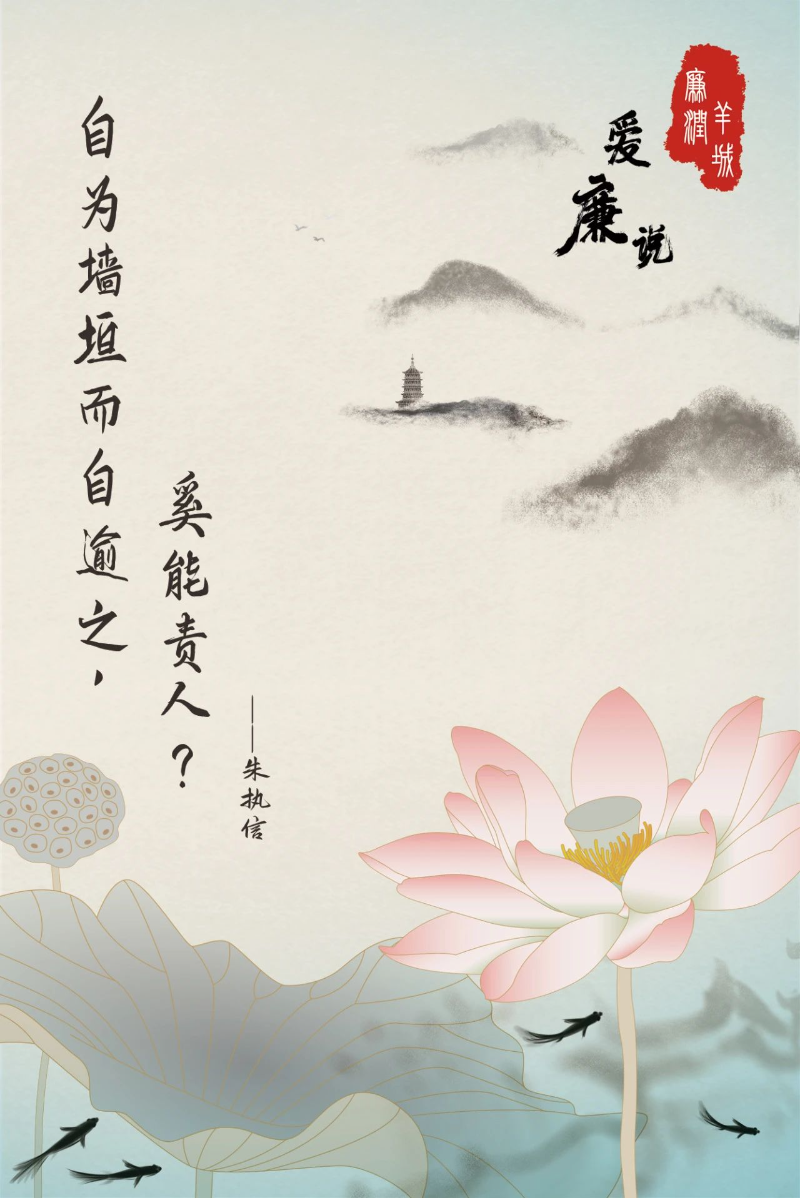 廉潤
羊城
爱廉说
自为墙垣而自逾之，
奚能责人？
——朱执信